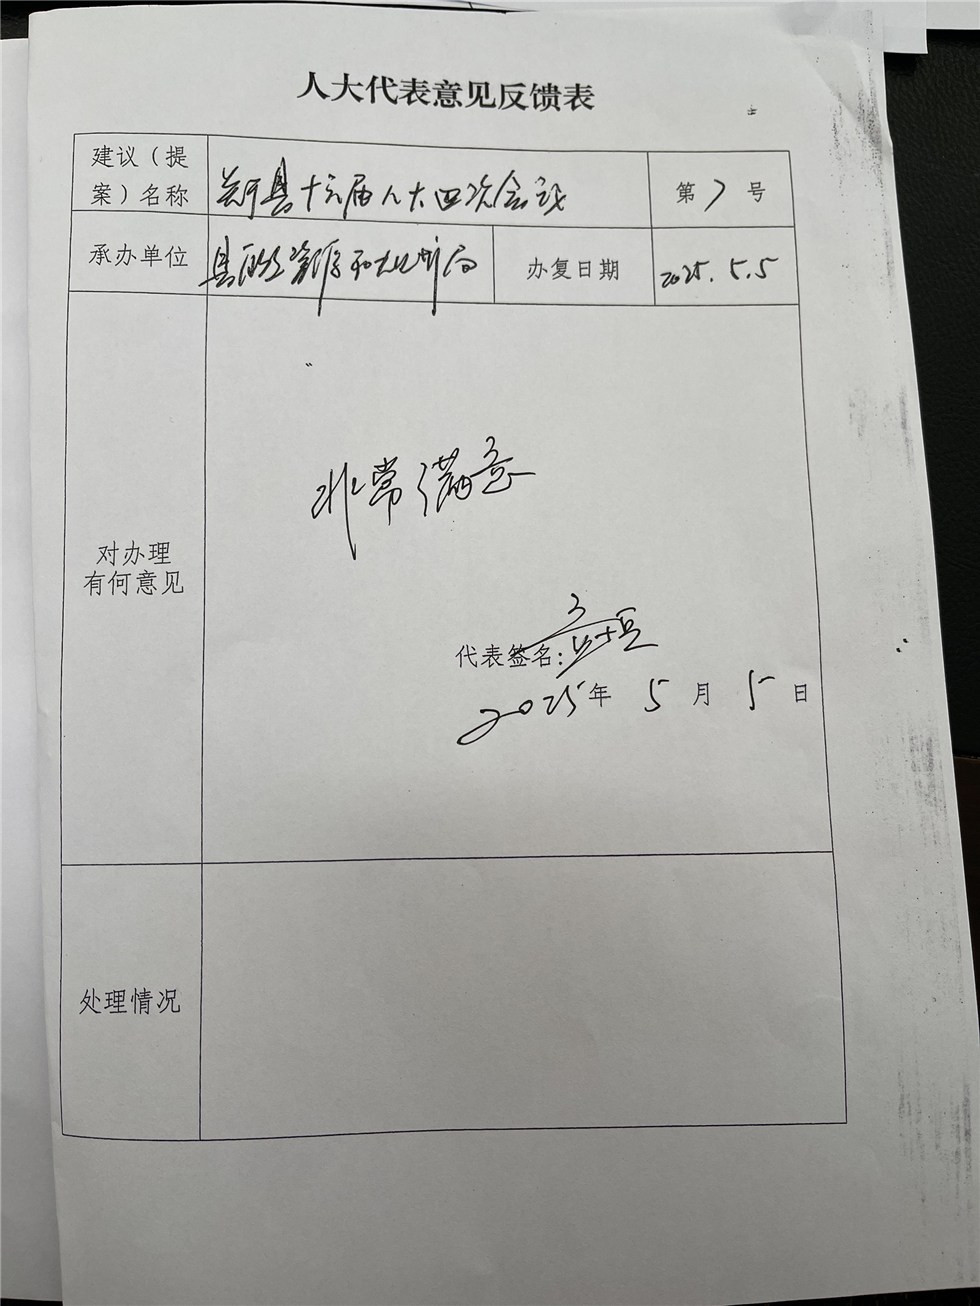 人大代表意见反馈表
建议（提
案）名称
县十六届人大四次会议
第7号
承办单位
县自然资源和规划局
办复日期
2025.5.5
非常满意
对办理
有何意见
代表签名：
2025年5月5日
处理情况